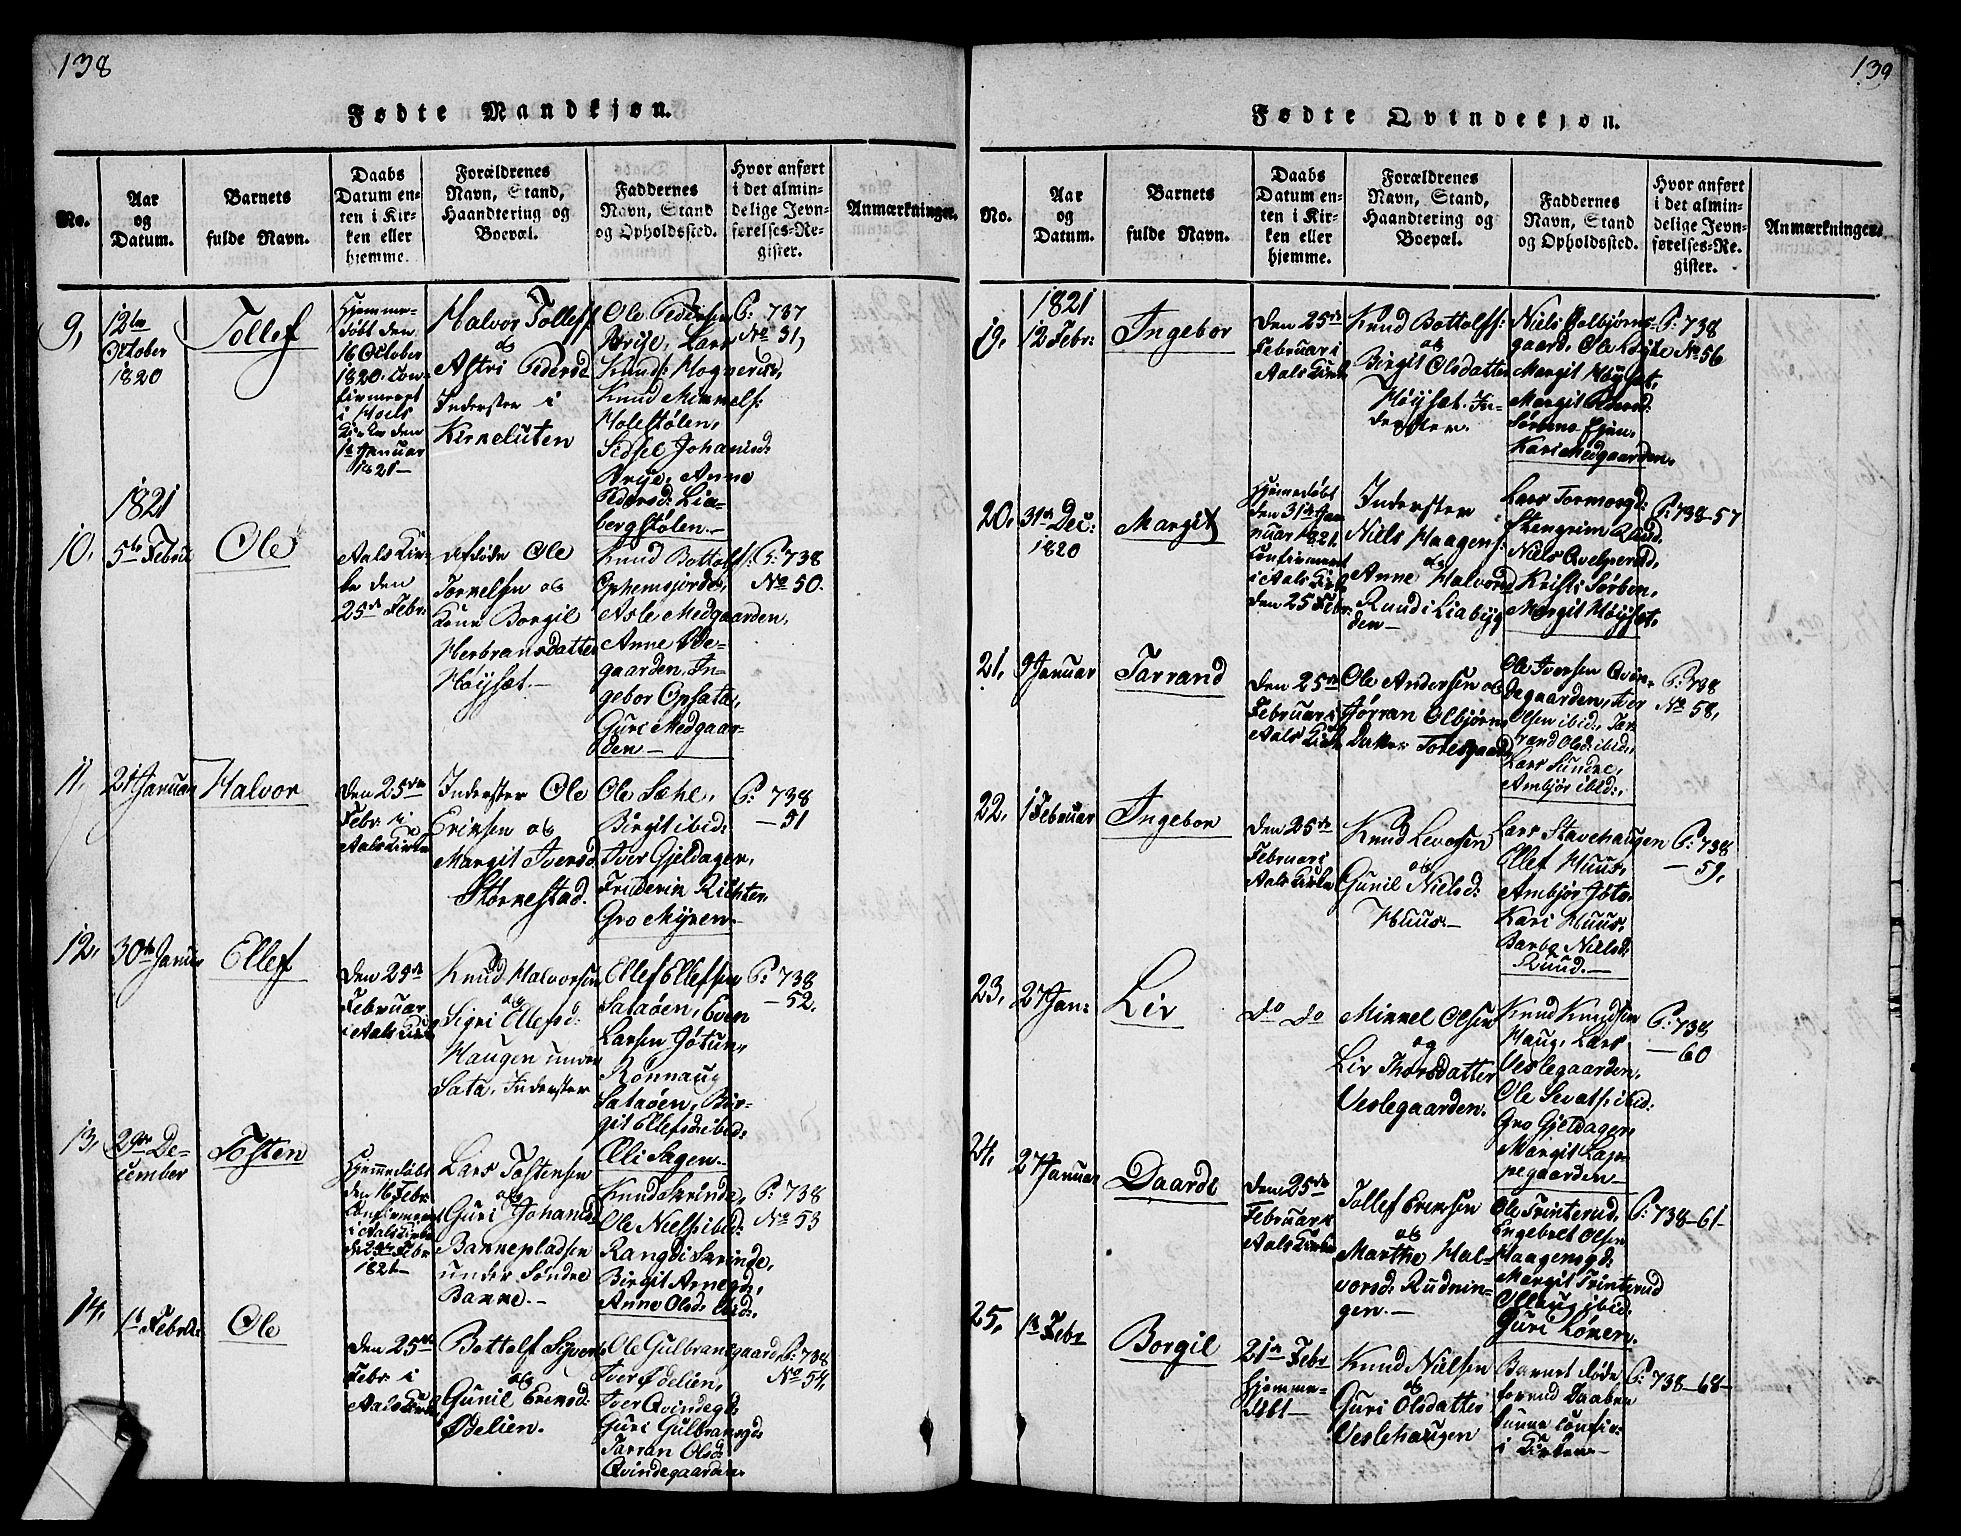 138
Fødte Mandkjøn.
No.
Aar
og
Datum.
Barnets
fulde Navn.
Daabs
Datum en-
ten i Kir-
ken eller
hjemme.
Forældrenes
Navn, Stand,
Haandtering og
Boepæl.
Faddernes
Navn, Stand
og Opholdssted.
Hvor anført
i det almin-
delige Jevn-
førelses-Re-
gister.
Anmærkninger.
9,
12te
October
1820
Tollef
Hjemme-
døbt den
16 October
1820. Con-
firmeret
i Hoels
Kirke den
1te Januar
1821-
Halvor Tollefs:
og
Astri Pedersd
Inderster i
Kirkeluten
Ole Pedersen
Brije, Lars
Knuds: Mogneru,
Knud Mikkels:
Holestølen,
Sidsel Johanisd:
Brije, Anne
Pedersd: Lia-
bergstølen.-
P: 737
No 31,
1821
10.
5te Febru
Ole
Aals Kir-
ke den
25de Febr:
afdøde Ole
Torkelsen og
Kone Borgil
Herbransdatter
Høyset.-
Knud Bottolfs:
Ophemsjorde,
Asle Medgaarden,
Anne Øde-
gaarden, In-
gebor Opsata,
Guri Medgaar-
den-
P: 738
No 50.
11.
21 Januar
Halvor
den 25de
Febr: i
Aals Kirke
Inderster Ole
Eriksen og
Margit Iversd
Storkestad.
Ole Sæhl,
Birgit ibid:
Iver Gjeldager,
Friderik Richter
Gro Myren.-
P: 738
-51
12.
30te Janu
Ellef
den 25de
Februar
i Aals Kirke
Knud Halvorsen
og
Sigri Ellefsd:
Haugen under
Sata, Inderster
Ellef Ellefsen
Sataøen, Even
Larsen Jøtun,
Ronnaug
Sataøen, Bir-
git Ellefsd: ibid:
Elli Sagen.-
P: 738
-52.
13,
29de De-
cember
Tosten
Hjemmedøbt
den 16 Febr:
Confirmeret
i Aals Kirke
den 25de Febr
1821-
Lars Tostensen
og
Guri Johanisd
Bakkepladsen
under Søndre
Bakke.-
Knud Skrinde,
Ole Niels: ibid:
Rangdi Skrinde,
Birgit Arnegd,
Anne Olsd: ibid:
P: 738
No 53
14.
1te Febr
Ole
den 25de
Febr: i
Aals Kirke
Bottolf Syvers
og
Gunil Eriksd:
Ødelien.
Ole Gulbrandsgaard,
Iver Ødelien,
Iver Qvindegd:
Guri Gulbransgd:
Tarran Olsd:
Qvindegaarden.
P: 738
No 54,
139
Fødte Qvindekjøn.
No.
Aar
og
Datum.
Barnets
fulde Navn.
Daabs
Datum en-
ten i Kir-
ken eller
hjemme.
Forældrenes
Navn, Stand,
Haandtering og
Boepæl.
Faddernes
Navn, Stand
og Opholdssted.
Hvor anført
i det almin-
delige Jevn-
førelses-Re-
gister.
Anmærkninger.
1821
19,
12 Febr:
Ingebor
den 25de
Februar i
Aals Kirke
Knud Bottolfs:
og
Birgit Olsdatter
Høyset. In-
derster.
Niels Golbjørns-
gaard, Ole Løyte
Margit Høyset,
Margit
Sørben
Kari Medgaarden.
P: 738
No 56
20,
31te Dec:
1820
Margit
Hjemmedøbt
den 31te Ja-
nuar 1821
Confirmeret
i Aals Kirke
den 25 Febr.
Inderster
Niels Haagens:
og
Anne Halvorsd
Ruud i Liabyg
den-
Lars Tormosgd:
Stengrim Ruud,
Niels Qvelprud,
Kristi Sørben,
Margit Høyset,
P: 738-57
21,
9 Januar
Tarrand
den 25de
Februar i
Aals Kirke
Ole Andersen og
Jørran Olbjørns
Datter Torisgaard
Ole Iversen Qvin-
degaarden, Iver
Olsen ibid: Tar-
rand Olsd: ibid:,
Lars Sundre,
Ambjør ibid:,
P: 738
No 58,
22.
1 Februar
Ingebor
den 25de
Februar i
Aals Kirke
Knud Levorsen
og
Gunil Nielsd:
Huus.-
Lars Stavehaugen
Ellef Huus,
Ambjør Jøto,
Kari Huus,
Barbo Nielsd:
Ruud.-
P: 738
-59,
23.
27 Jan:
Liv
do do
Mikkel Olsen
og
Liv Thorsdatter
Veslegaarden.
Knud Knudsen
Haug, Lars
Veslegaarden,
Ole Sevats: ibid:
Gro Gjeldager,
Margit Lap-
pegaarden
P: 738
-60
24,
27 Januar
Daarde
den 25de
Februar i
Aals Kirke
Tollef Eriksen
og
Marthe Hal-
vorsd: Rudnin-
gen.-
Ole Trinterud,
Engebret Olsen
Haagensgd:
Margit Trinterud
Ollaug ibid:
Guri Løken.
P: 738-61-
25,
1te Febr
Borgil
21de Febr
hjemme-
døbt-
Knud Nielsen
og
Guri Olsdatter
Veslehaugen
Barnet døde
forend Daaben
kunne confir:
i Kirken-
P: 738-68-